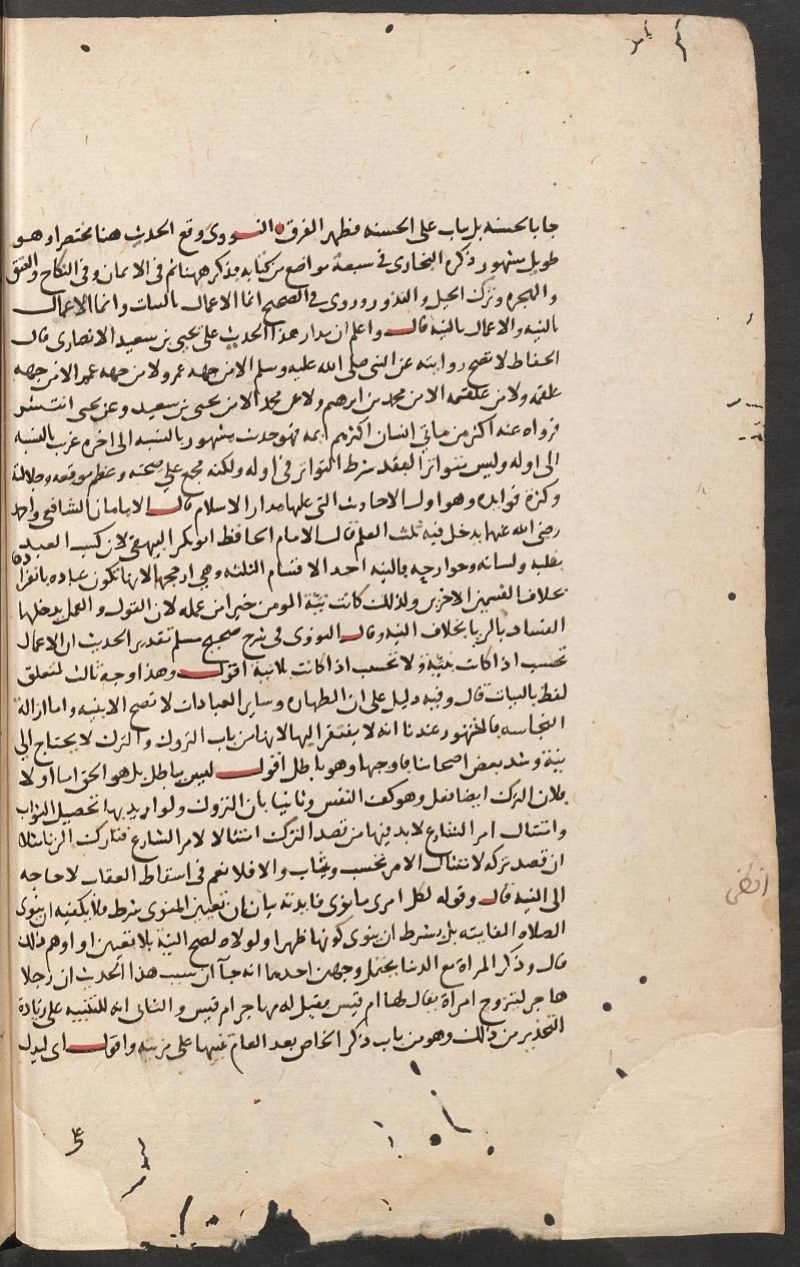 جا بالحسنه بل باب على الحسنه فظهر الفرق النووى وقع الحديث هنا مختصرا وهو
طويل مشهور ذكره البخارى فى سبعة مواضع من كتابه فذكره ههنا ثم فى الايمان وفى النكاح والعتق
والهجره وترك الحيل والنذور وروى فى الصحيح انما الاعمال بالنيات وانما الاعمال
بالنيه والاعمال بالنيه قال واعلم ان مدار هذا الحديث على يحيى بن سعيد الانصارى قال
الحفاظ لا تصح روايته عن النبى صلى الله عليه وسلم الا من جهه عمر ولا من جهه عمر الا من جهه
علقمه ولا من علقمه الا من محمد بن ابرهيم ولا عن محمد الا من يحيى بن سعيد وعن يحيى انتشر
فرواه عنه اكثر من مايتى انسان اكثرهم ايمه فهو حديث مشهور بالنسبه الى اخره غريب بالنسبه
الى اوله وليس متواترا لفقد شرط التواتر فى اوله ولكنه مجمع على صحته وعظم موقعه وجلالته
وكثرة فوايده وهو اول الاحاديث التى عليها مدار الاسلام قال الامامان الشافعى واحمد
رضى الله عنهما يدخل فيه ثلث العلم قال الامام الحافظ ابو بكر البيهقى لان كسب العبد
بقلبه ولسانه وجوارحه فالنيه احد الاقسام الثلثه وهى ارجحها لانها تكون عباده بانفرادها
بخلاف القسمين الاخرين ولذلك كانت نيّة المومن خير من عمله لان القول والعمل يدخلها
الفساد بالريا بخلاف النيه وقال النووى فى شرح صحيح مسلم تقدير الحديث ان الاعمال
تحسب اذا كانت بنيّة ولا تحسب اذا كانت بلا نيه اقول وهذا وجه ثالث لتعلق
لفظ بالنيات قال وفيه دليل على ان الطهاره وساير العبادات لا تصح الا بنيه واما ازالة
النجاسه فالمشهور عندنا انه لا يفتقر اليها لانها من باب التروك والترك لا يحتاج الى
نيّة وشد بعض اصحابنا فاوجبها وهو باطل اقول ليس بباطل بل هو الحق اما اولا
فلان الترك ايضا فعل وهو كف النفس وثانيا بان التروك ولو اريد بها تحصيل الثواب
وامتثال امر الشارع لا بد فيها من قصد الترك امتثالا لامر الشارع فتارك الزنا مثلا
ان قصد تركه لامتثال الامر تحسب ويثاب والا فلا نعم فى اسقاط العقاب لا حاجه
الى النيه قال وقوله لكل امرى ما نوى فايدته بيان ان تعيين المنوى شرط فلا يكفيه ان ينوى
الصلاه الفايته بل يشرط ان ينوى كونها ظهرا ولولاه لصح النيّة بلا تعيين او اوهم ذلك
قال وذكر المراة مع الدنيا يحتمل وجهين احدهما انه جآ ان سبب هذا الحديث ان رجلا
هاجر ليتزوج امراة يقال لها ام قيس فقيل له مهاجر ام قيس والثانى انه للتنبيه على زيادة
التحذير من ذلك وهو من باب ذكر الخاص بعد العام تنبيها على مزيته واقول اى ليدل